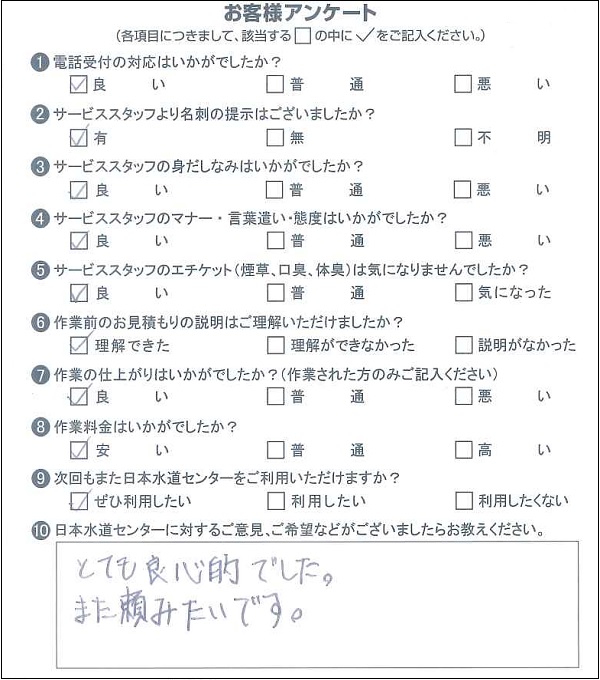 お客様アンケート
(各項目につきまして、該当する□の中に✓をご記入ください。)
❶ 電話受付の対応はいかがでしたか?
☑ 良い □ 普通 □ 悪い
❷ サービススタッフより名刺の提示はございましたか?
☑ 有 □ 無 □ 不明
❸ サービススタッフの身だしなみはいかがでしたか?
☑ 良い □ 普通 □ 悪い
❹ サービススタッフのマナー・言葉遣い・態度はいかがでしたか?
☑ 良い □ 普通 □ 悪い
❺ サービススタッフのエチケット(煙草、口臭、体臭)は気になりませんでしたか?
☑ 良い □ 普通 □ 気になった
❻ 作業前のお見積もりの説明はご理解いただけましたか?
☑ 理解できた □ 理解ができなかった □ 説明がなかった
❼ 作業の仕上がりはいかがでしたか?(作業された方のみご記入ください)
☑ 良い □ 普通 □ 悪い
❽ 作業料金はいかがでしたか?
☑ 安い □ 普通 □ 高い
❾ 次回もまた日本水道センターをご利用いただけますか?
☑ ぜひ利用したい □ 利用したい □ 利用したくない
❿ 日本水道センターに対するご意見、ご希望などがございましたらお教えください。
とても良心的でした。
また頼みたいです。